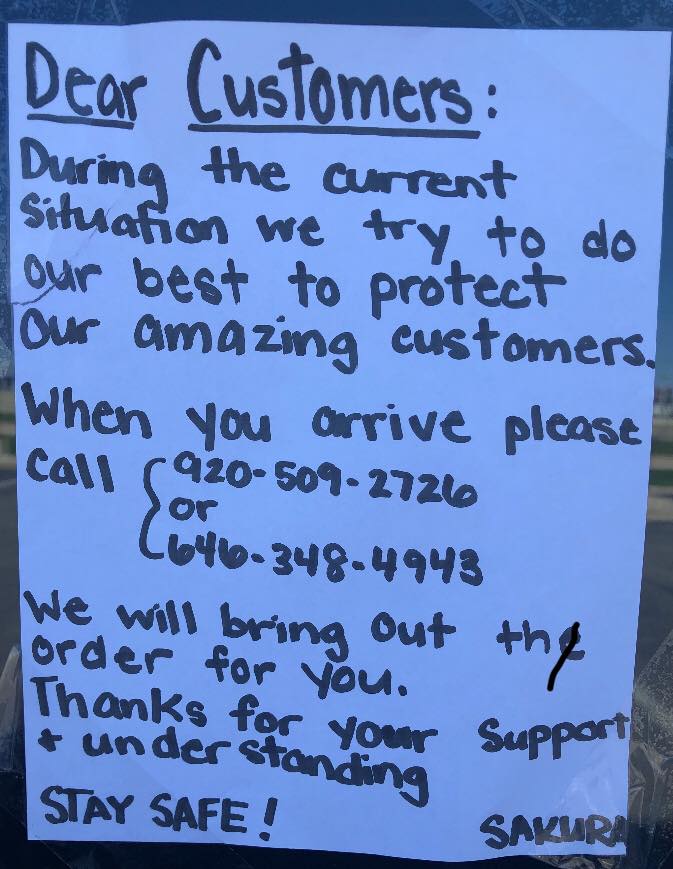 Dear Customers:
During the current
situation we try to do
our best to protect
our amazing customers.
When you arrive please
call { 920-509-2726
or
646-348-4943
We will bring out the
order for you.
Thanks for your support
+ understanding
STAY SAFE!
SAKURA